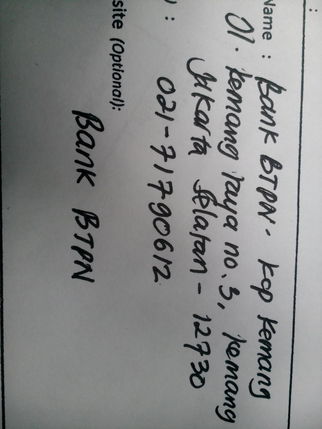 :
Name : Bank BTPN - Kcp Kemang
Jl. Kemang Raya no. 3, Kemang
Jakarta Selatan - 12730
) : 021-71790612
site (Optional):
Bank BTPN